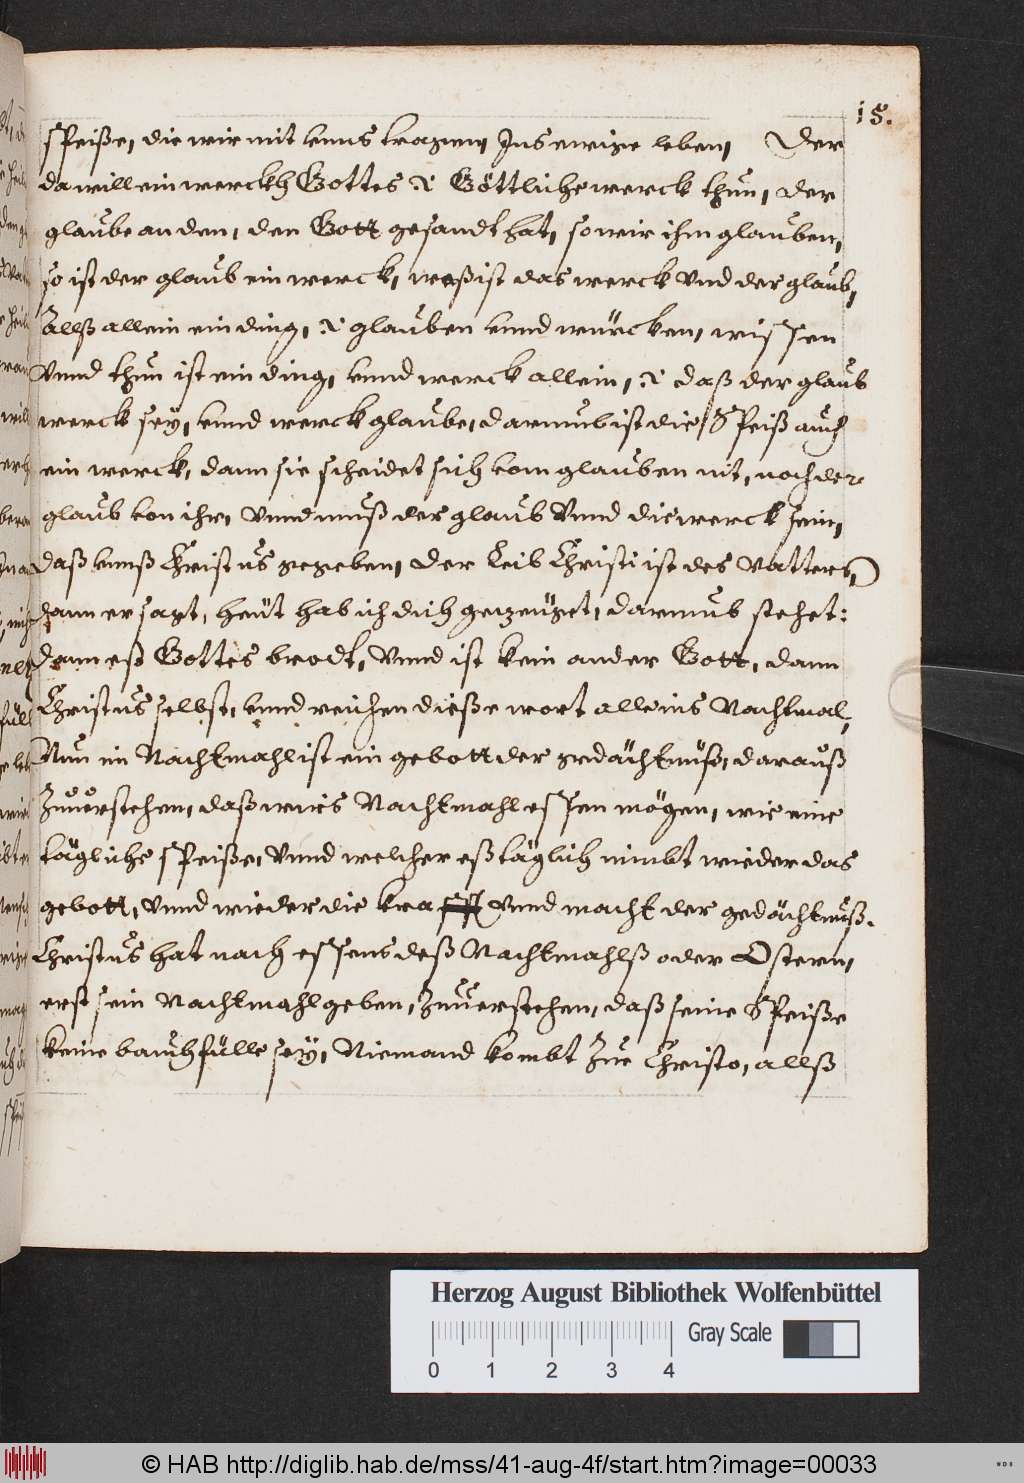 15.
speiße, die wir mit vnns tragenn, Ins ewige leben, Der
da will ein werckh Gottes & Göttliche werck thun, der
glaube an den, den Gott gesandt hat, so wir ihm glauben,
so ist der glaub ein werck, waß ist das werck vnd der glaub,
Allß allein ein ding, & glauben vnnd würcken, wissen
vnnd thun ist ein ding, vnnd werck allein, & daß der glaub
werck sey, vnnd werck glaube, darumb ist die Speiß auch
ein werck, dann sie scheidet sich vom glauben nit, noch der
glaub von ihr, vnnd muß der glaub vnnd die werck sein,
daß vnnß Christus gegeben, der Leib Christi ist des Vatters,
dann er sagt, heüt hab ich dich gezeüget, darumb stehet:
dann eß Gottes brodt, vnnd ist kein ander Gott, dann
Christus selbst, vnnd reichen dieße wort alle ins Nachtmal,
Nun im Nachtmahl ist ein gebott der gedächtnüß, darauß
Zuuerstehen, daß wirs Nachtmahl essen mögen, wie eine
tägliche speiße, vnnd welcher eß täglich nimbt wieder das
gebott, vnnd wieder die kra vnnd macht der gedächtnuß.
Christus hat nach essens deß Nachtmahlß oder Ostern,
erst sein Nachtmahl geben, Zuuerstehen, daß seine Speiße
keine bauchfülle sey, Niemand kombt Zue Christo, allß
Herzog August Bibliothek Wolfenbüttel
Gray Scale
0 1 2 3 4
© HAB http://diglib.hab.de/mss/41-aug-4f/start.htm?image=00033